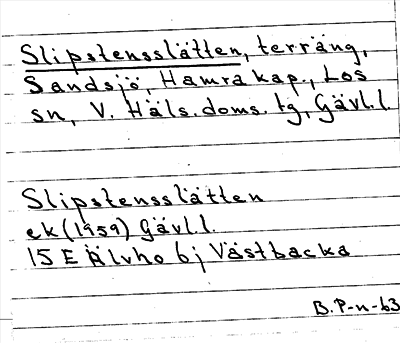 Slipstensslätten, terräng,
Sandsjö, Hamra kap., Los
sn, V. Häls. doms. tg, Gävl.l.
Slipstensslätten
ek (1959) Gävl.l.
15 E Älvho 6j Västbacka
B. P-n-63